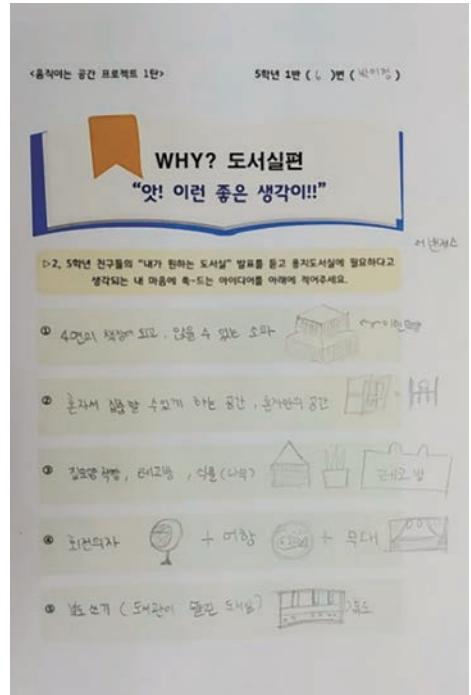 <움직이는 공간 프로젝트 1탄> 5학년 1반 ( 6 )번 ( 박이정 )
WHY? 도서실편
“앗! 이런 좋은 생각이!!”
▷2, 5학년 친구들의 “내가 원하는 도서실” 발표를 듣고 용지도서실에 필요하다고
생각되는 내 마음에 쏙~드는 아이디어를 아래에 적어주세요.
① 4면이 책장이 되고, 앉을 수 있는 소파 이런모양
② 혼자서 집중할 수있게 하는 공간, 혼자만의 공간
③ 집모양 책방, 테코방, 식물(나무) 테코방
④ 회전의자 + 어항 + 무대
⑤ 보드